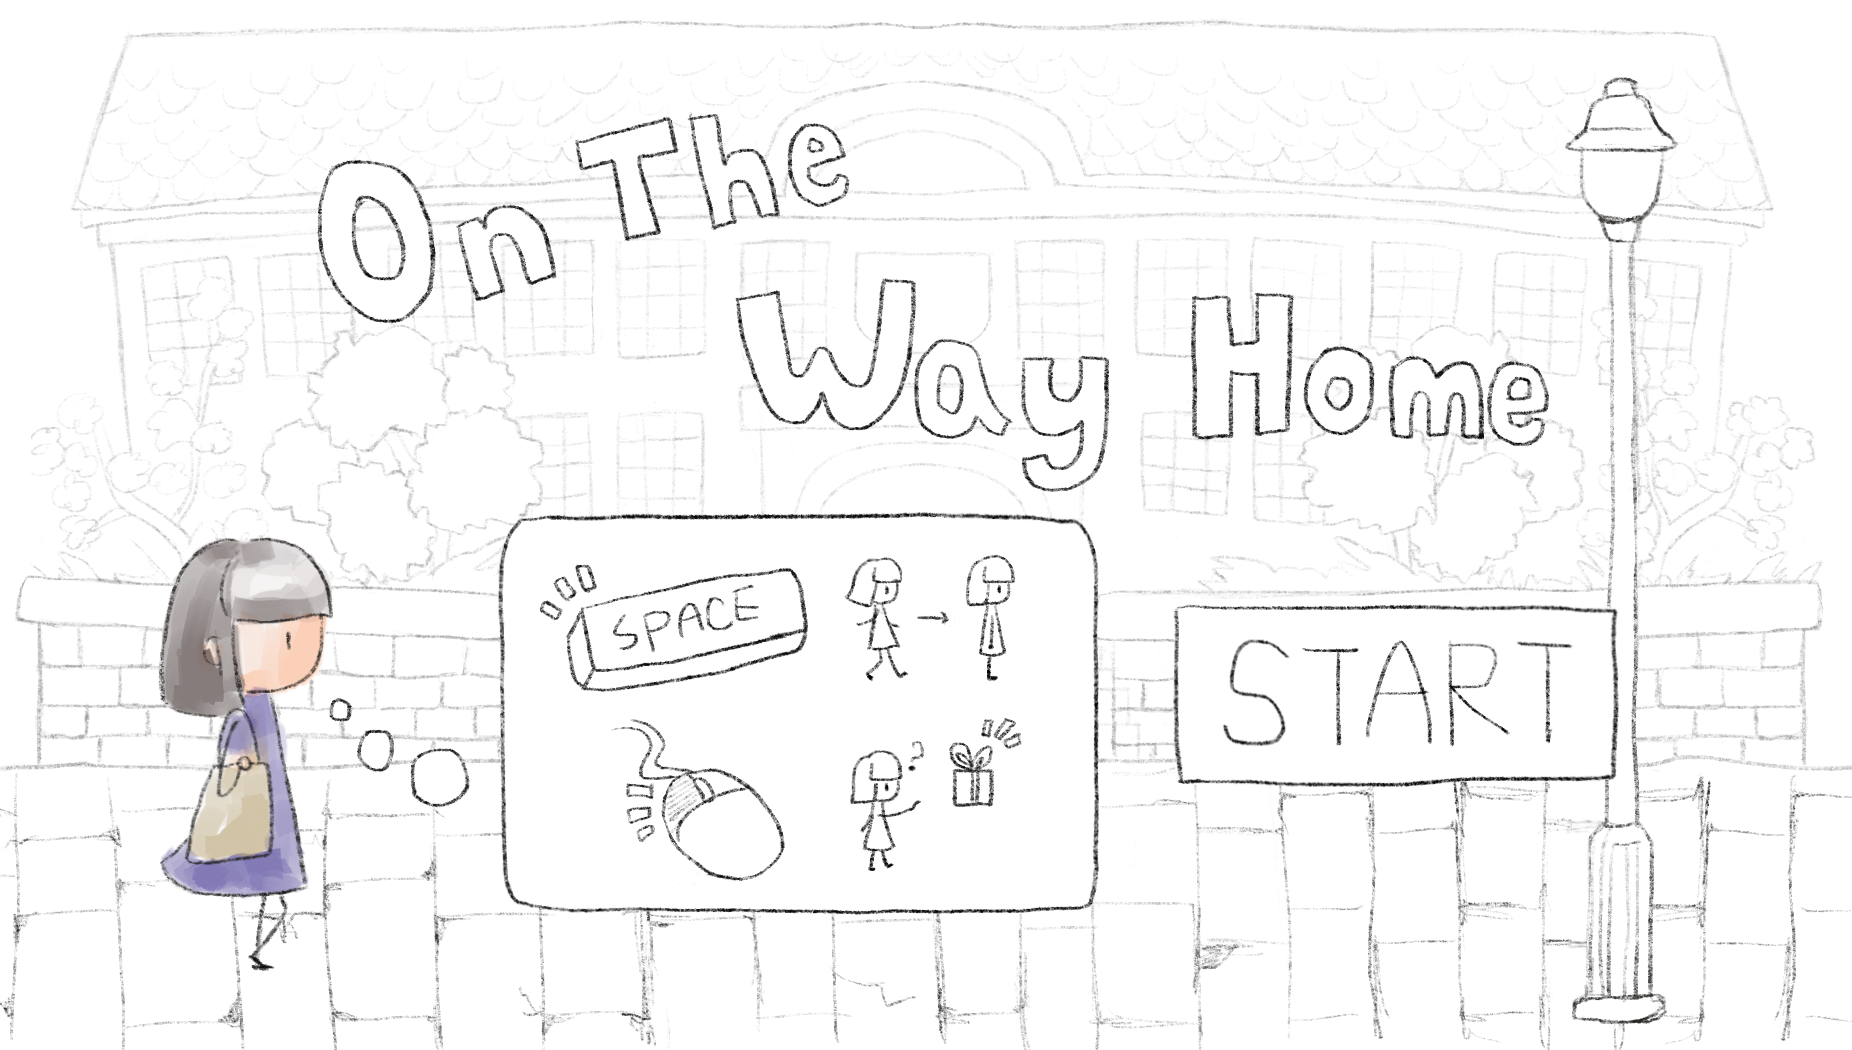 On The
Way Home
SPACE
?
START